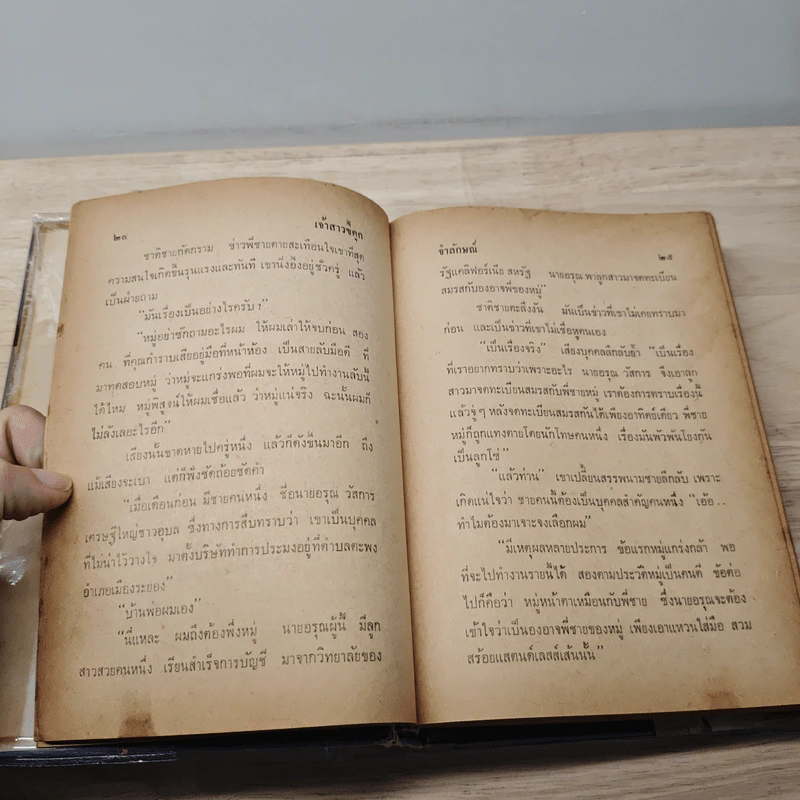 ๒๔ เจ้าสาวขี้คุก
ชาติชายกัดกราม ข่าวพี่ชายตายสะเทือนใจเขาที่สุด
ความสนใจเกิดขึ้นรุนแรงและทันที เขานิ่งอึ้งอยู่ชั่วครู่ แล้ว
เป็นฝ่ายถาม
“มันเรื่องเป็นอย่างไรครับ?”
“หมู่อย่าซักถามอะไรผม ให้ผมเล่าให้จบก่อน สอง
คน ที่คุณกำราบเสียอยู่มือที่หน้าห้อง เป็นสายลับมือดี ที่
มาทดสอบหมู่ ว่าหมู่จะแกร่งพอที่ผมจะให้หมู่ไปทำงานลับนี้
ได้ไหม หมู่พิสูจน์ให้ผมเชื่อแล้ว ว่าหมู่แน่จริง ฉะนั้นผมก็
ไม่ลังเลอะไรอีก”
เสียงนั้นขาดหายไปครู่หนึ่ง แล้วก็ดังขึ้นมาอีก ถึง
แม้เสียงจะเบา แต่ก็ฟังชัดถ้อยชัดคำ
“เมื่อเดือนก่อน มีชายคนหนึ่ง ชื่อนายอรุณ วัสการ
เศรษฐีใหญ่ชาวอุบล ซึ่งทางการสืบทราบว่า เขาเป็นบุคคล
ที่ไม่น่าไว้วางใจ มาตั้งบริษัททำการประมงอยู่ที่ตำบลตะพง
อำเภอเมืองระยอง”
“บ้านพ่อผมเอง”
“นี่แหละ ผมถึงต้องพึ่งหมู่ นายอรุณผู้นี้ มีลูก
สาวสวยคนหนึ่ง เรียนสำเร็จการบัญชี มาจากวิทยาลัยของ
จำลักษณ์ ๒๕
รัฐแคลิฟอร์เนีย สหรัฐ นายอรุณ พาลูกสาวมาจดทะเบียน
สมรสกับองอาจพี่ของหมู่”
ชาติชายตะลึงงัน มันเป็นข่าวที่เขาไม่เคยทราบมา
ก่อน และเป็นข่าวที่เขาไม่เชื่อหูตนเอง
“เป็นเรื่องจริง” เสียงบุคคลลึกลับย้ำ “เป็นเรื่อง
ที่เราอยากทราบว่าเพราะอะไร นายอรุณ วัสการ จึงเอาลูก
สาวมาจดทะเบียนสมรสกับพี่ชายหมู่ เราต้องการทราบเรื่องนี้
แล้วจู่ๆ หลังจดทะเบียนสมรสกันได้เพียงอาทิตย์เดียว พี่ชาย
หมู่ก็ถูกแทงตายโดยนักโทษคนหนึ่ง เรื่องมันพัวพันโยงกัน
เป็นลูกโซ่”
“แล้วท่าน” เขาเปลี่ยนสรรพนามชายลึกลับ เพราะ
เกิดแน่ใจว่า ชายคนนี้ต้องเป็นบุคคลสำคัญคนหนึ่ง “เอ้อ..
ทำไมต้องมาเจาะจงเลือกผม”
“มีเหตุผลหลายประการ ข้อแรกหมู่แกร่งกล้า พอ
ที่จะไปทำงานรายนี้ได้ สองตามประวัติหมู่เป็นคนดี ข้อต่อ
ไปก็คือว่า หมู่หน้าตาเหมือนกับพี่ชาย ซึ่งนายอรุณจะต้อง
เข้าใจว่าเป็นองอาจพี่ชายของหมู่ เพียงเอาแหวนใส่มือ สวม
สร้อยแสตนด์เลสส์เส้นนั้น”